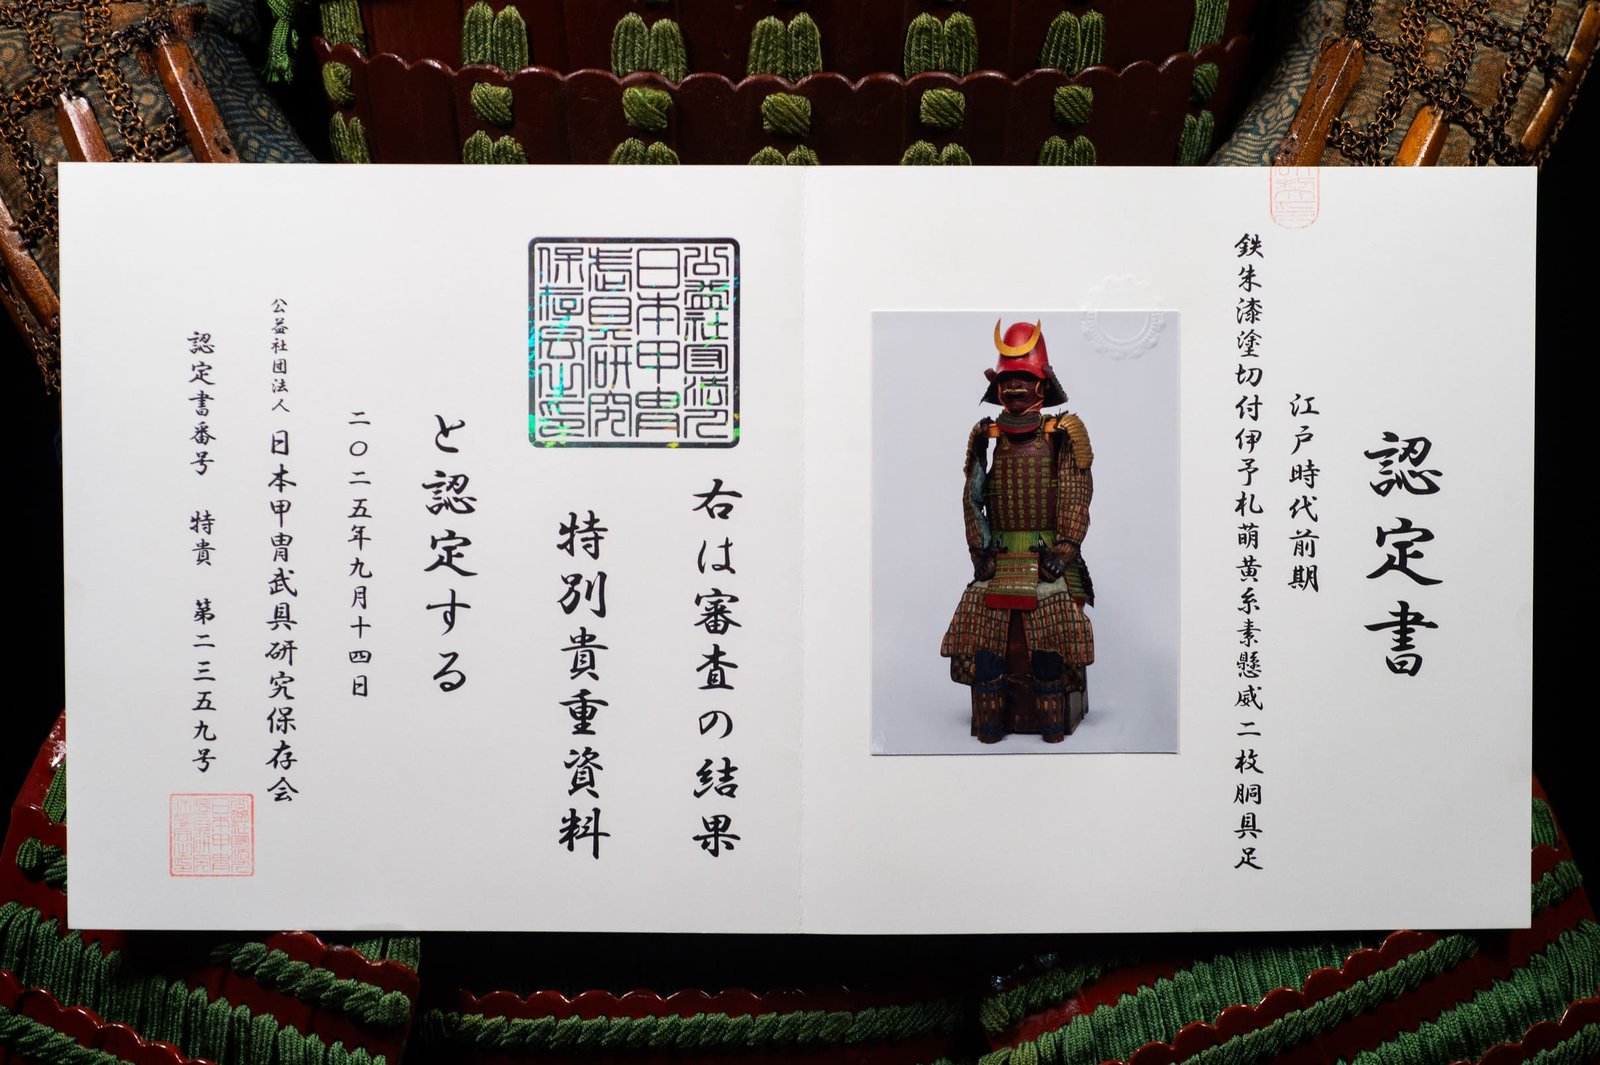 認定書
江戸時代前期
鉄朱漆塗切付伊予札萌黄糸素懸威二枚胴具足
右は審査の結果
特別貴重資料
と認定する
二〇二五年九月十四日
公益社団法人 日本甲冑武具研究保存会
認定書番号 特貴 第二三五九号
公益社団法人
日本甲冑
武具研究
保存会之印